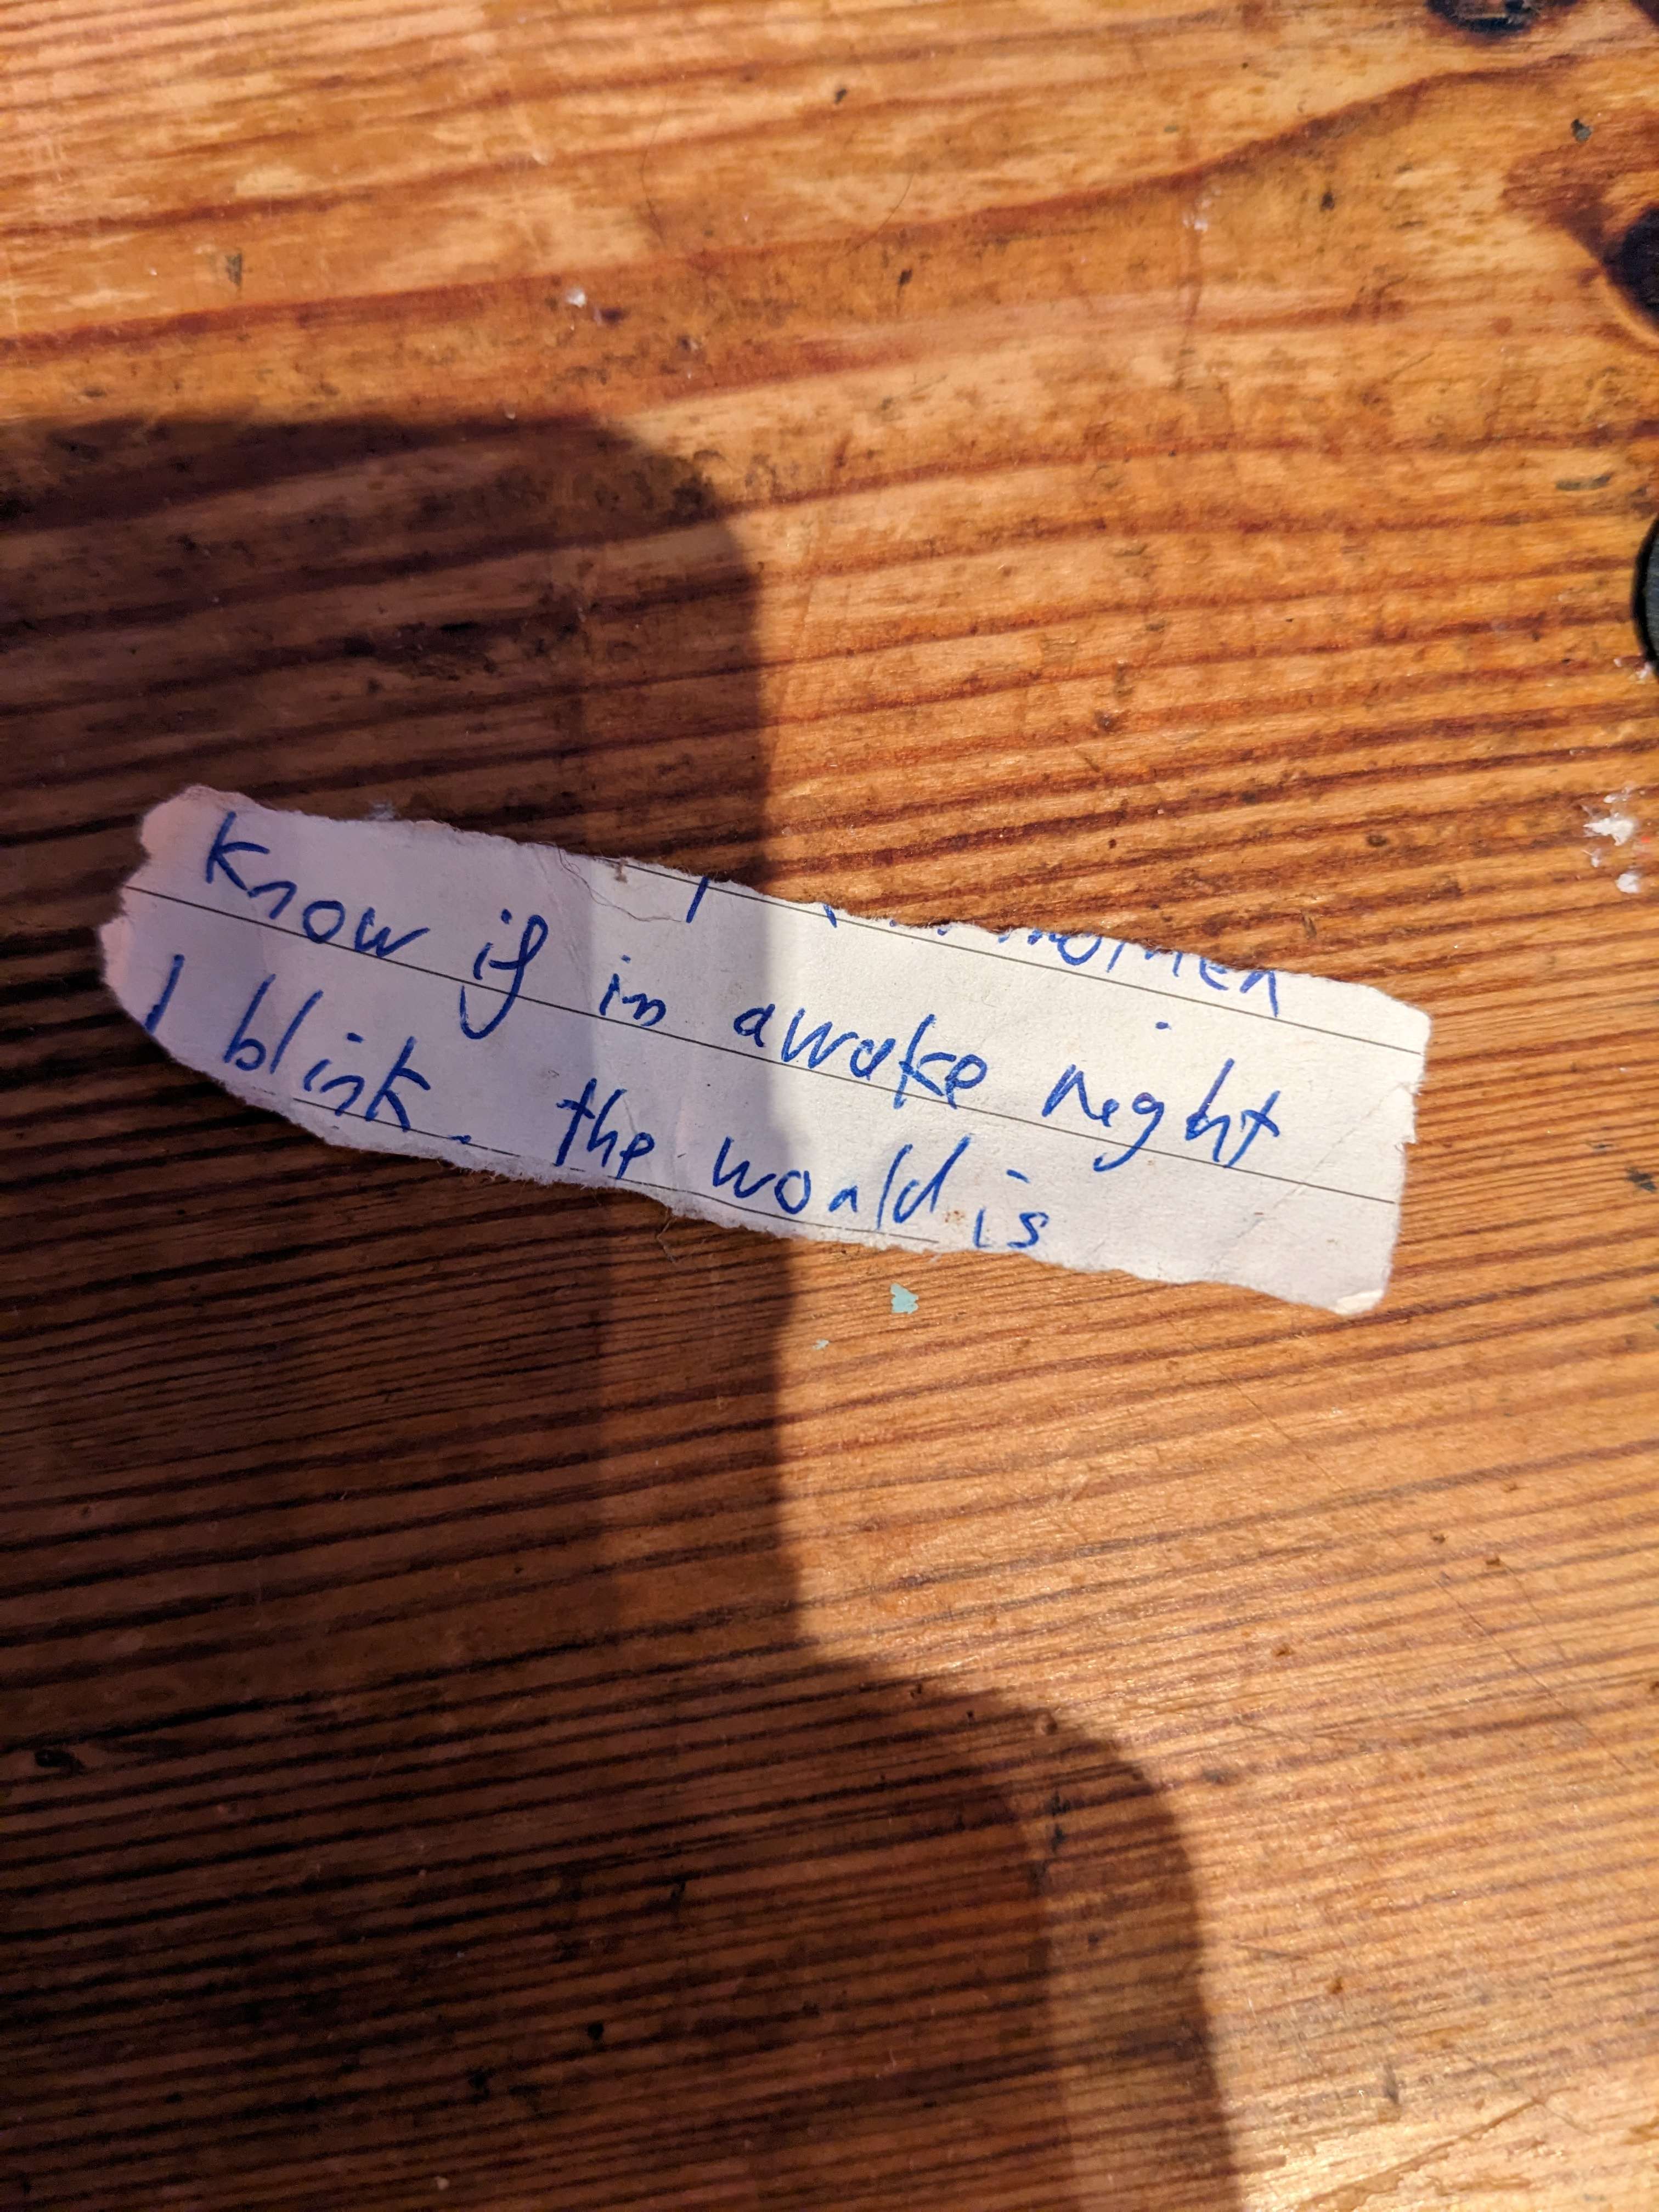 I
know if in awake right
I blink. the world is